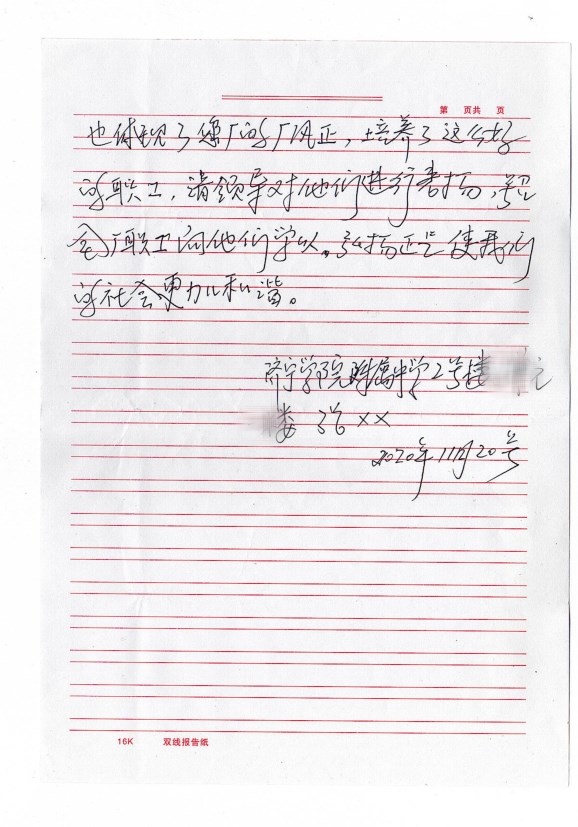 第 页共 页
也体现了您厂的厂风正，培养了这么好
的职工，请领导对他们进行表扬，号召
全厂职工向他们学以，弘扬正气使我们
的社会更加和谐。
济宁学院附属中学2号楼
楼 张××
2020年11月20号
16K 双线报告纸